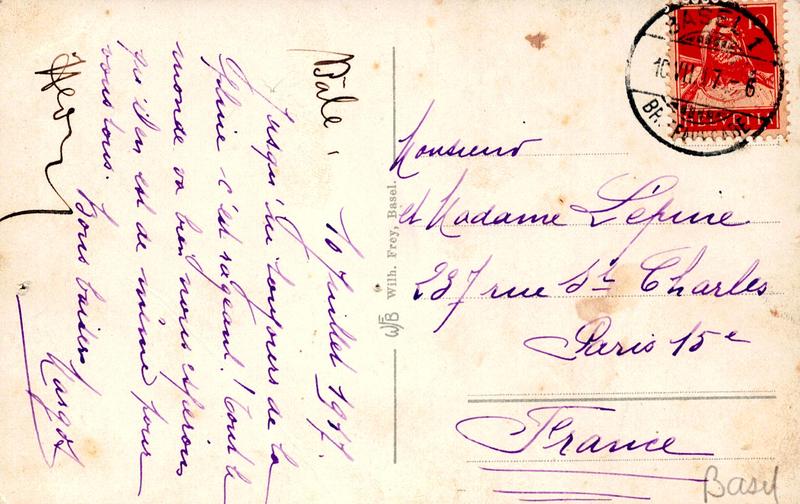 Bâle,
10 Juillet 1917.
Jusqu'ici toujours de la
pluie c'est rageant! Tout le
monde va bien nous espérons
qu'il en est de même pour
vous tous. Bons baisers
Margot
Wilh. Frey, Basel.
WFB
BASEL 1
10 VII 17 - 6
10
Monsieur
et Madame Lépine
237 rue St Charles
Paris 15e
France
Basel